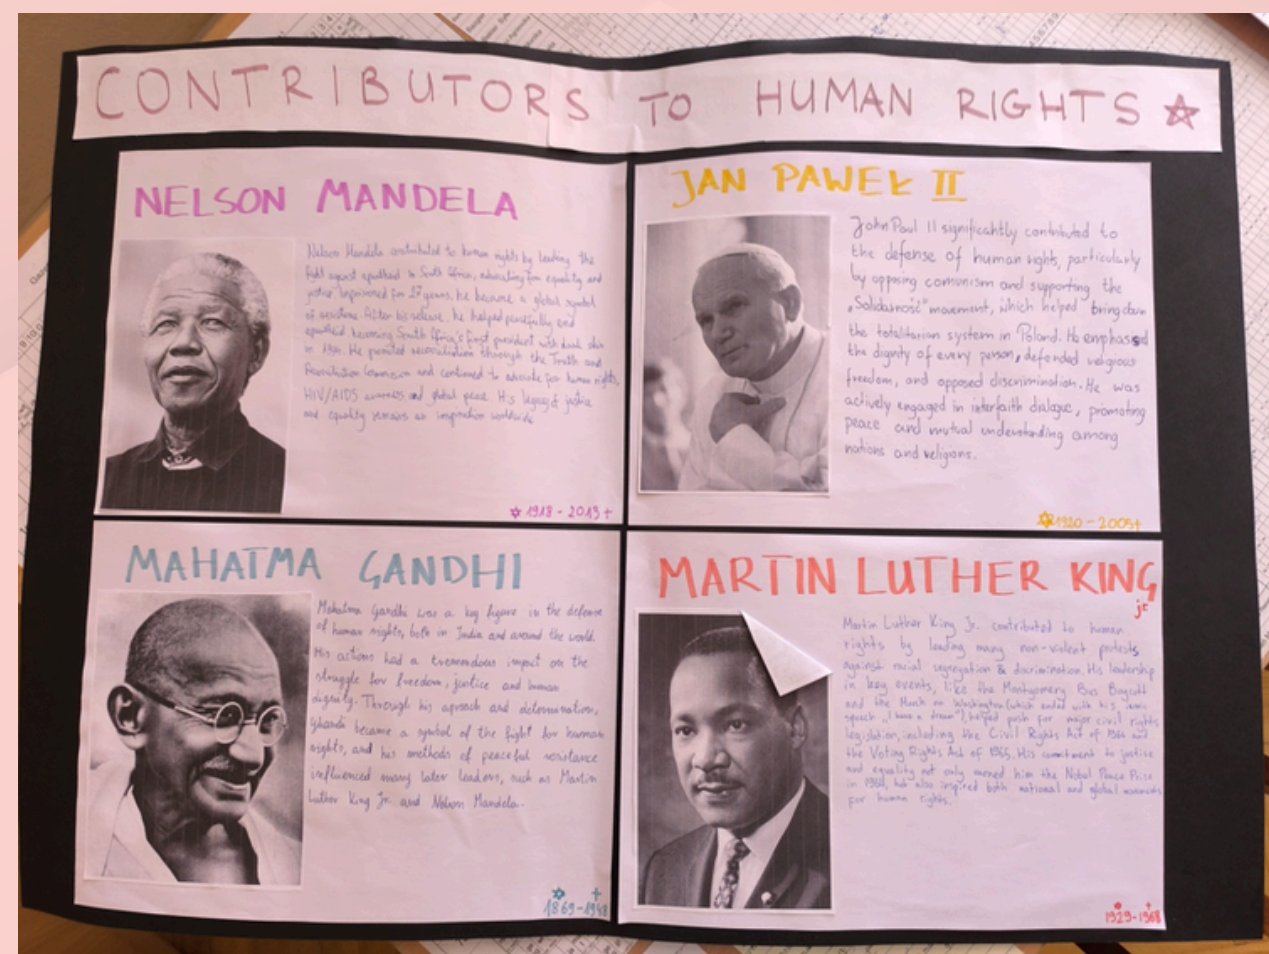 CONTRIBUTORS TO HUMAN RIGHTS
NELSON MANDELA
Nelson Mandela contributed to human rights by leading the
fight against apartheid in South Africa, advocating for equality and
justice. Imprisoned for 27 years, he became a global symbol
of resistance. After his release, he helped peacefully end
apartheid becoming South Africa's first president with dark skin
in 1994. He promoted reconciliation through the Truth and
Reconciliation Commission and continued to advocate for human rights,
HIV/AIDS awareness and global peace. His legacy of justice
and equality remains an inspiration worldwide
1918 - 2013
JAN PAWEŁ II
John Paul II significantly contributed to
the defense of human rights, particularly
by opposing comunism and supporting the
„Solidarność" movement, which helped bring down
the totalitarian system in Poland. He emphased
the dignity of every person, defended religious
freedom, and opposed discrimination. He was
actively engaged in interfaith dialogue, promoting
peace and mutual understanding among
nations and religions.
1920 - 2005
MAHATMA GANDHI
Mahatma Gandhi was a key figure in the defense
of human rights, both in India and around the world.
His actions had a tremendous impact on the
struggle for freedom, justice and human
dignity. Through his aproach and determination,
Ghandi became a symbol of the fight for human
rights, and his methods of peaceful resistance
influenced many later leaders, such as Martin
Luther King Jr. and Nelson Mandela.
1869-1948
MARTIN LUTHER KING
jr
Martin Luther King Jr. contributed to human
rights by leading many non-violent protests
against racial segregation & discrimination. His leadership
in key events, like the Montgomery Bus Boycott
and the March on Washington (which ended with his
speech „I have a dream") helped push for major civil rights
legislation, including the Civil Rights Act of 1964 and
the Voting Rights Act of 1965. His commitment to justice
and equality not only earned him the Nobel Peace Prize
in 1964, but also inspired both national and global movements
for human rights.
1929-1968